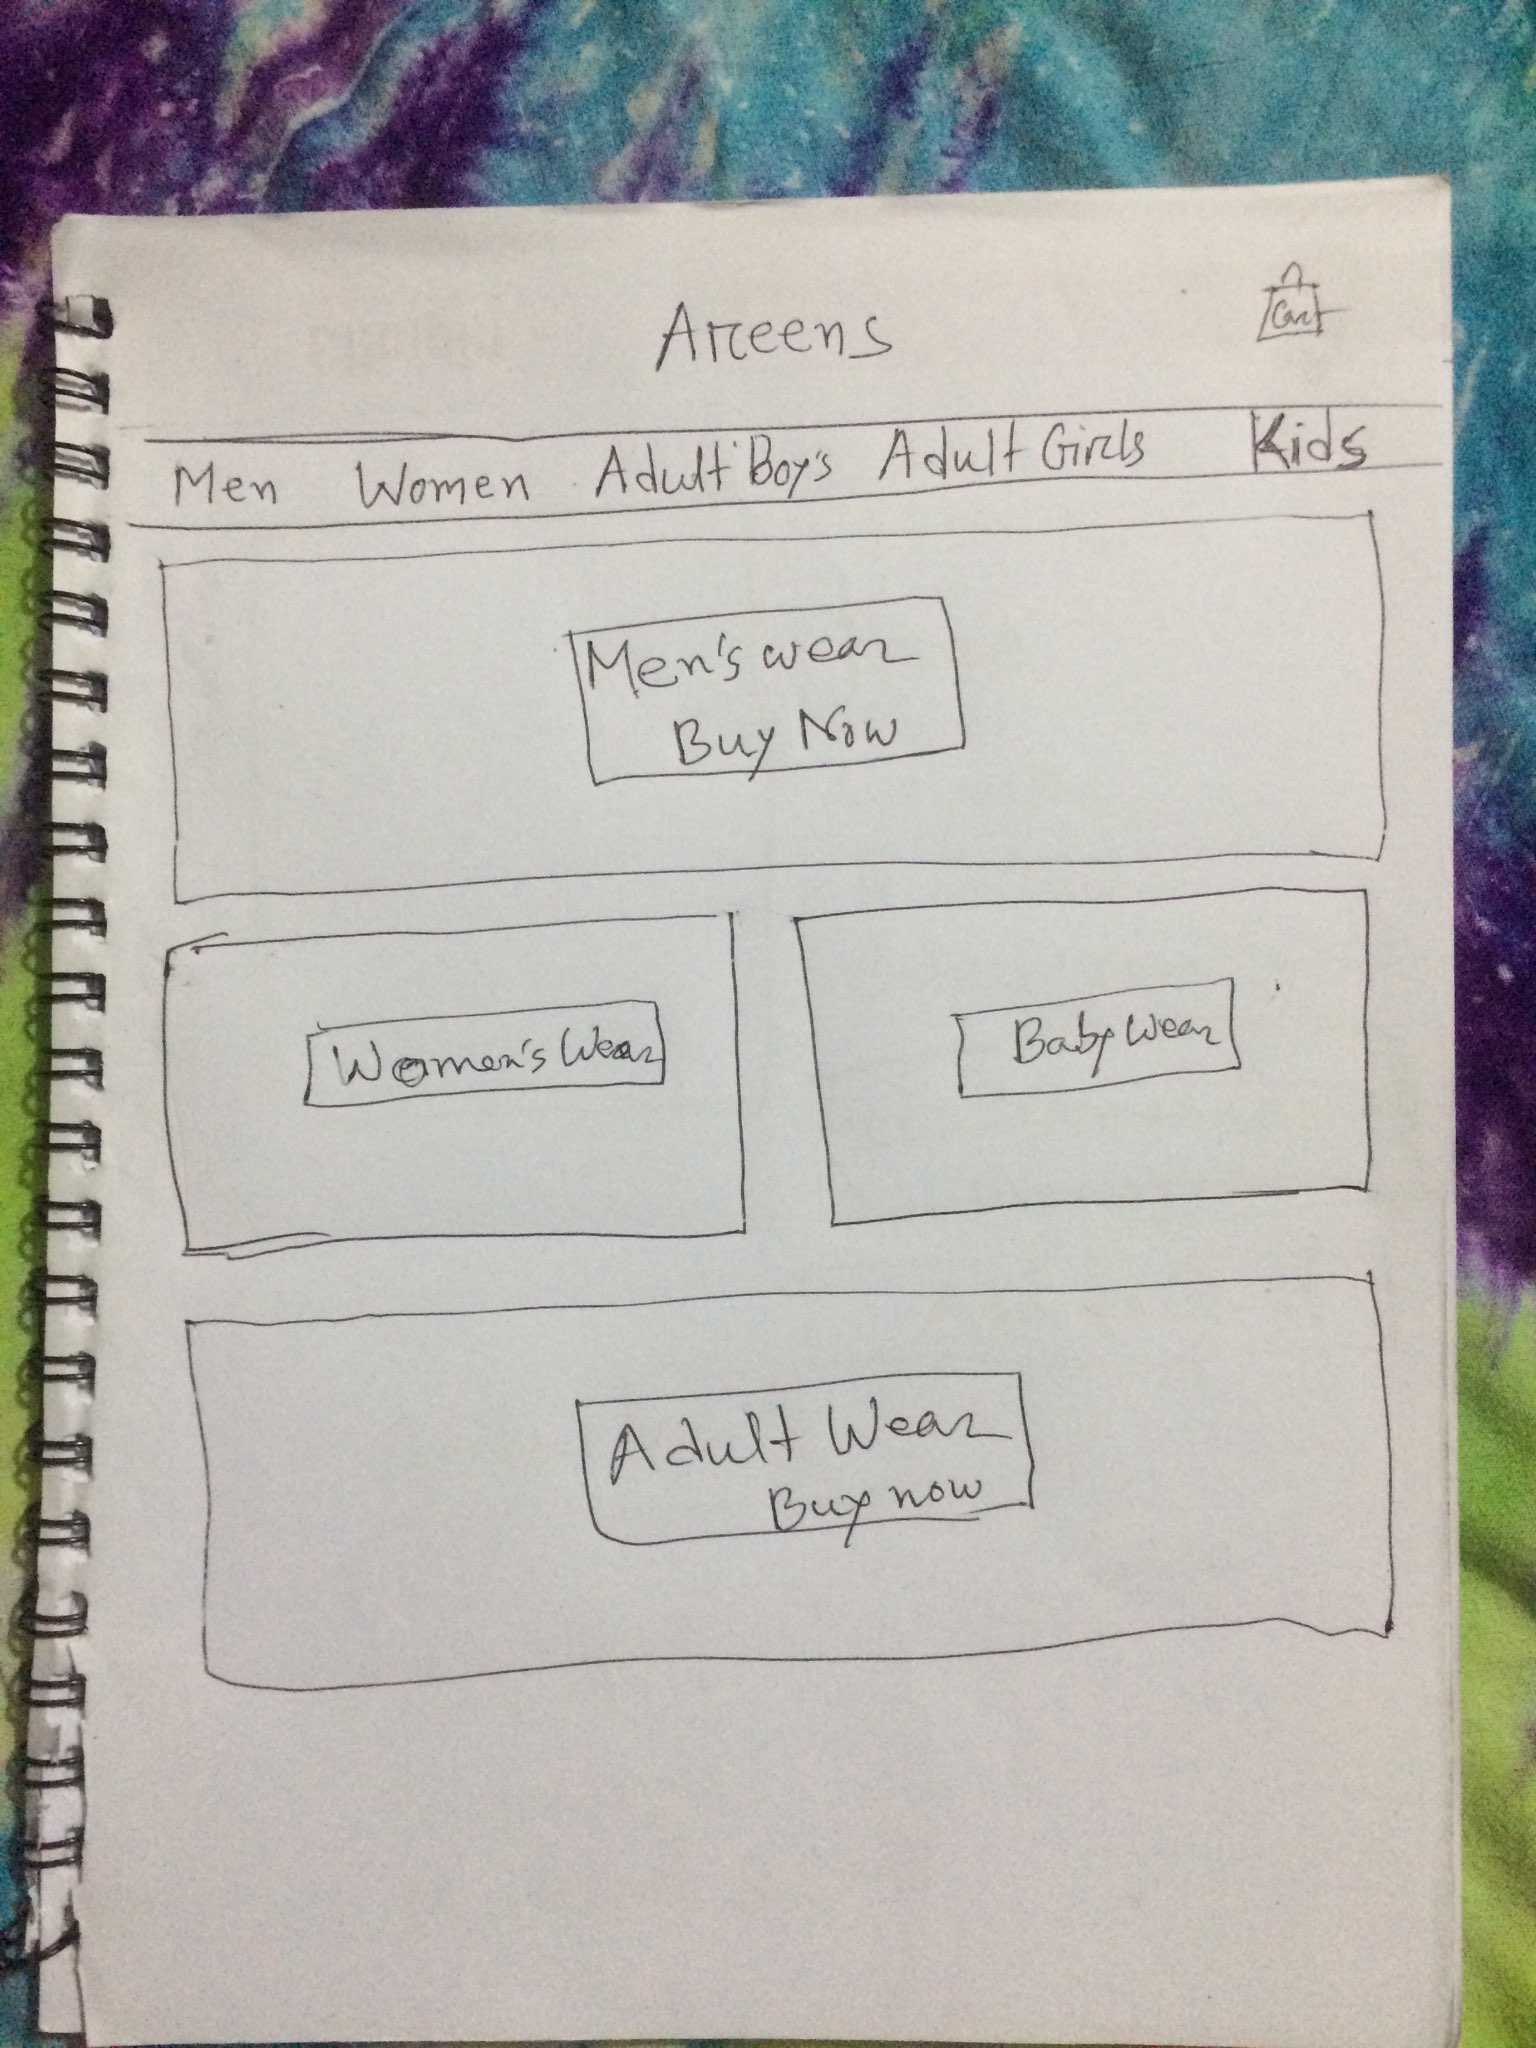 Areens
Cart
Men Women Adult Boy's Adult Girls Kids
Men's wear
Buy Now
Women's Wear
Baby Wear
Adult Wear
Buy now